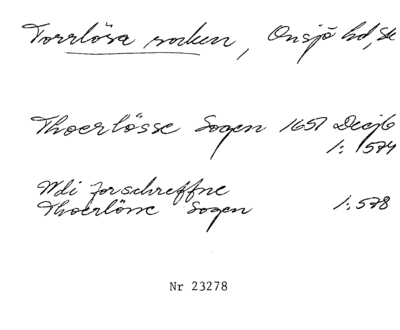 Torrlösa socken, Onsjö hd, Sk
Thoerlösse Sogen 1651 Decj6
1:1574
Wdi forschreffne
Thoerlösse Sogen 1:578
Nr 23278